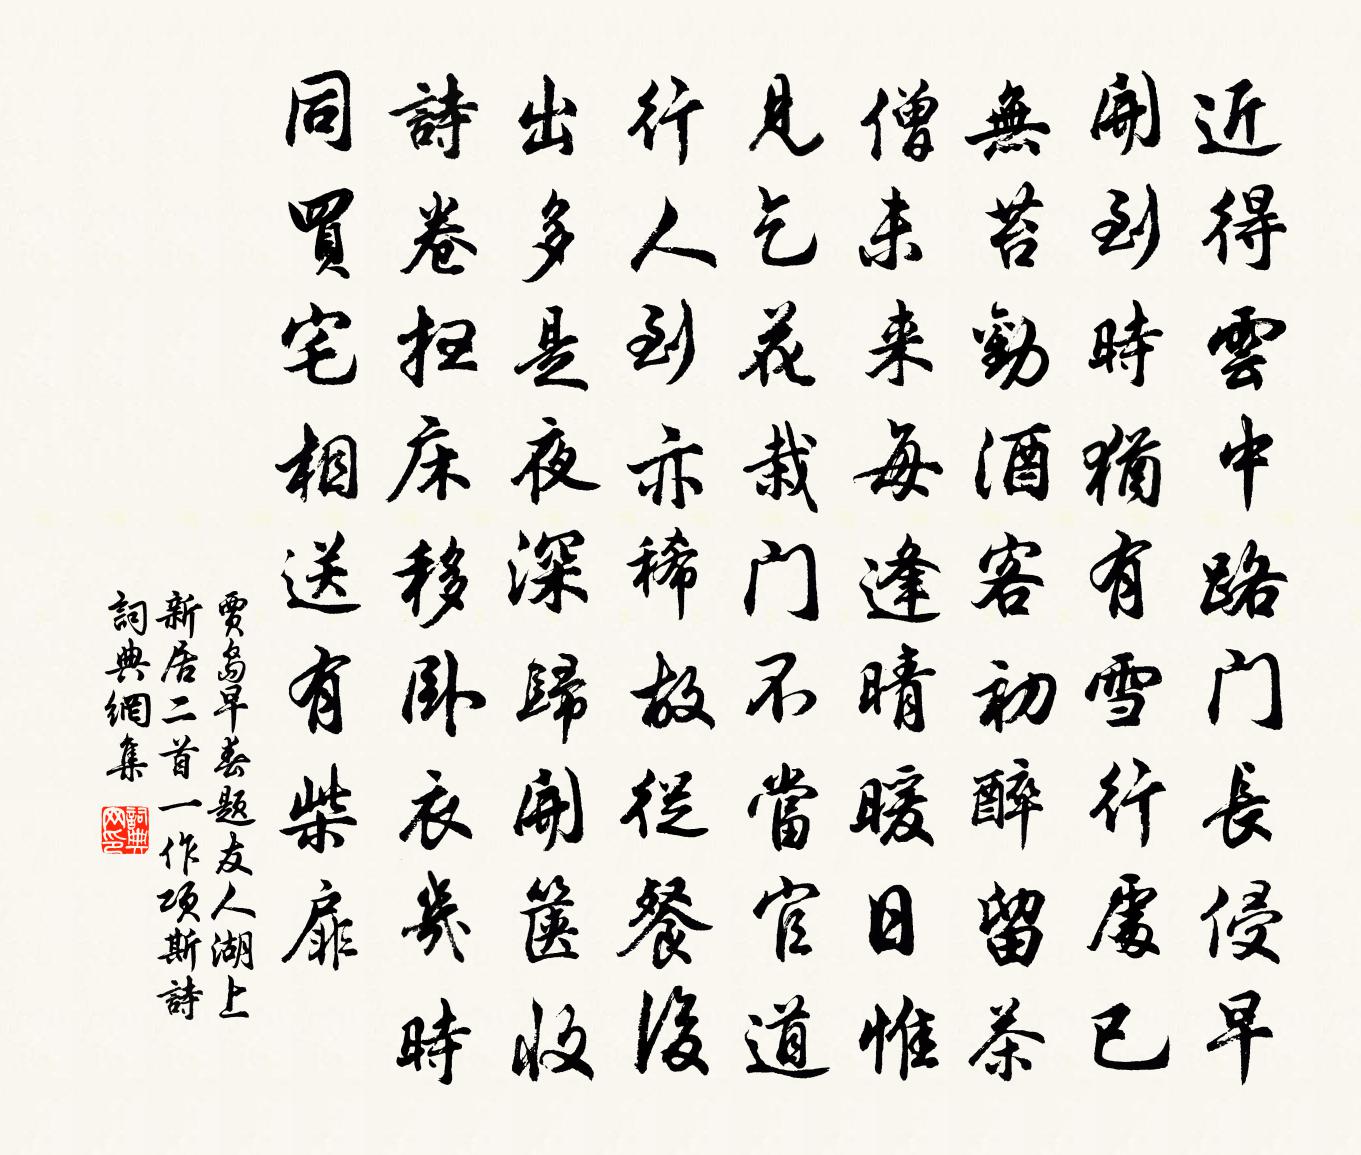 近得雲中路门長侵早
開到時猶有雪行處已
無苔勸酒客初醉留茶
僧未来每逢晴暖日惟
見乞花栽门不當官道
行人到亦稀故從餐後
出多是夜深歸開篋收
詩卷掃床移卧衣幾時
同買宅相送有柴扉
賈島早春題友人湖上
新居二首一作項斯詩
詞典網集
詞典网印